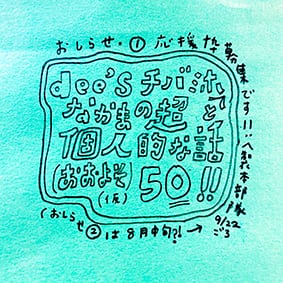 おしらせ・① 応援枠募集です!!
dee'S チバ氏と
なかまの超
個人的な話
(おおよそ) 50!!
(仮)
製本部隊
9/22
ごろ
(おしらせ②は8月中旬?! →